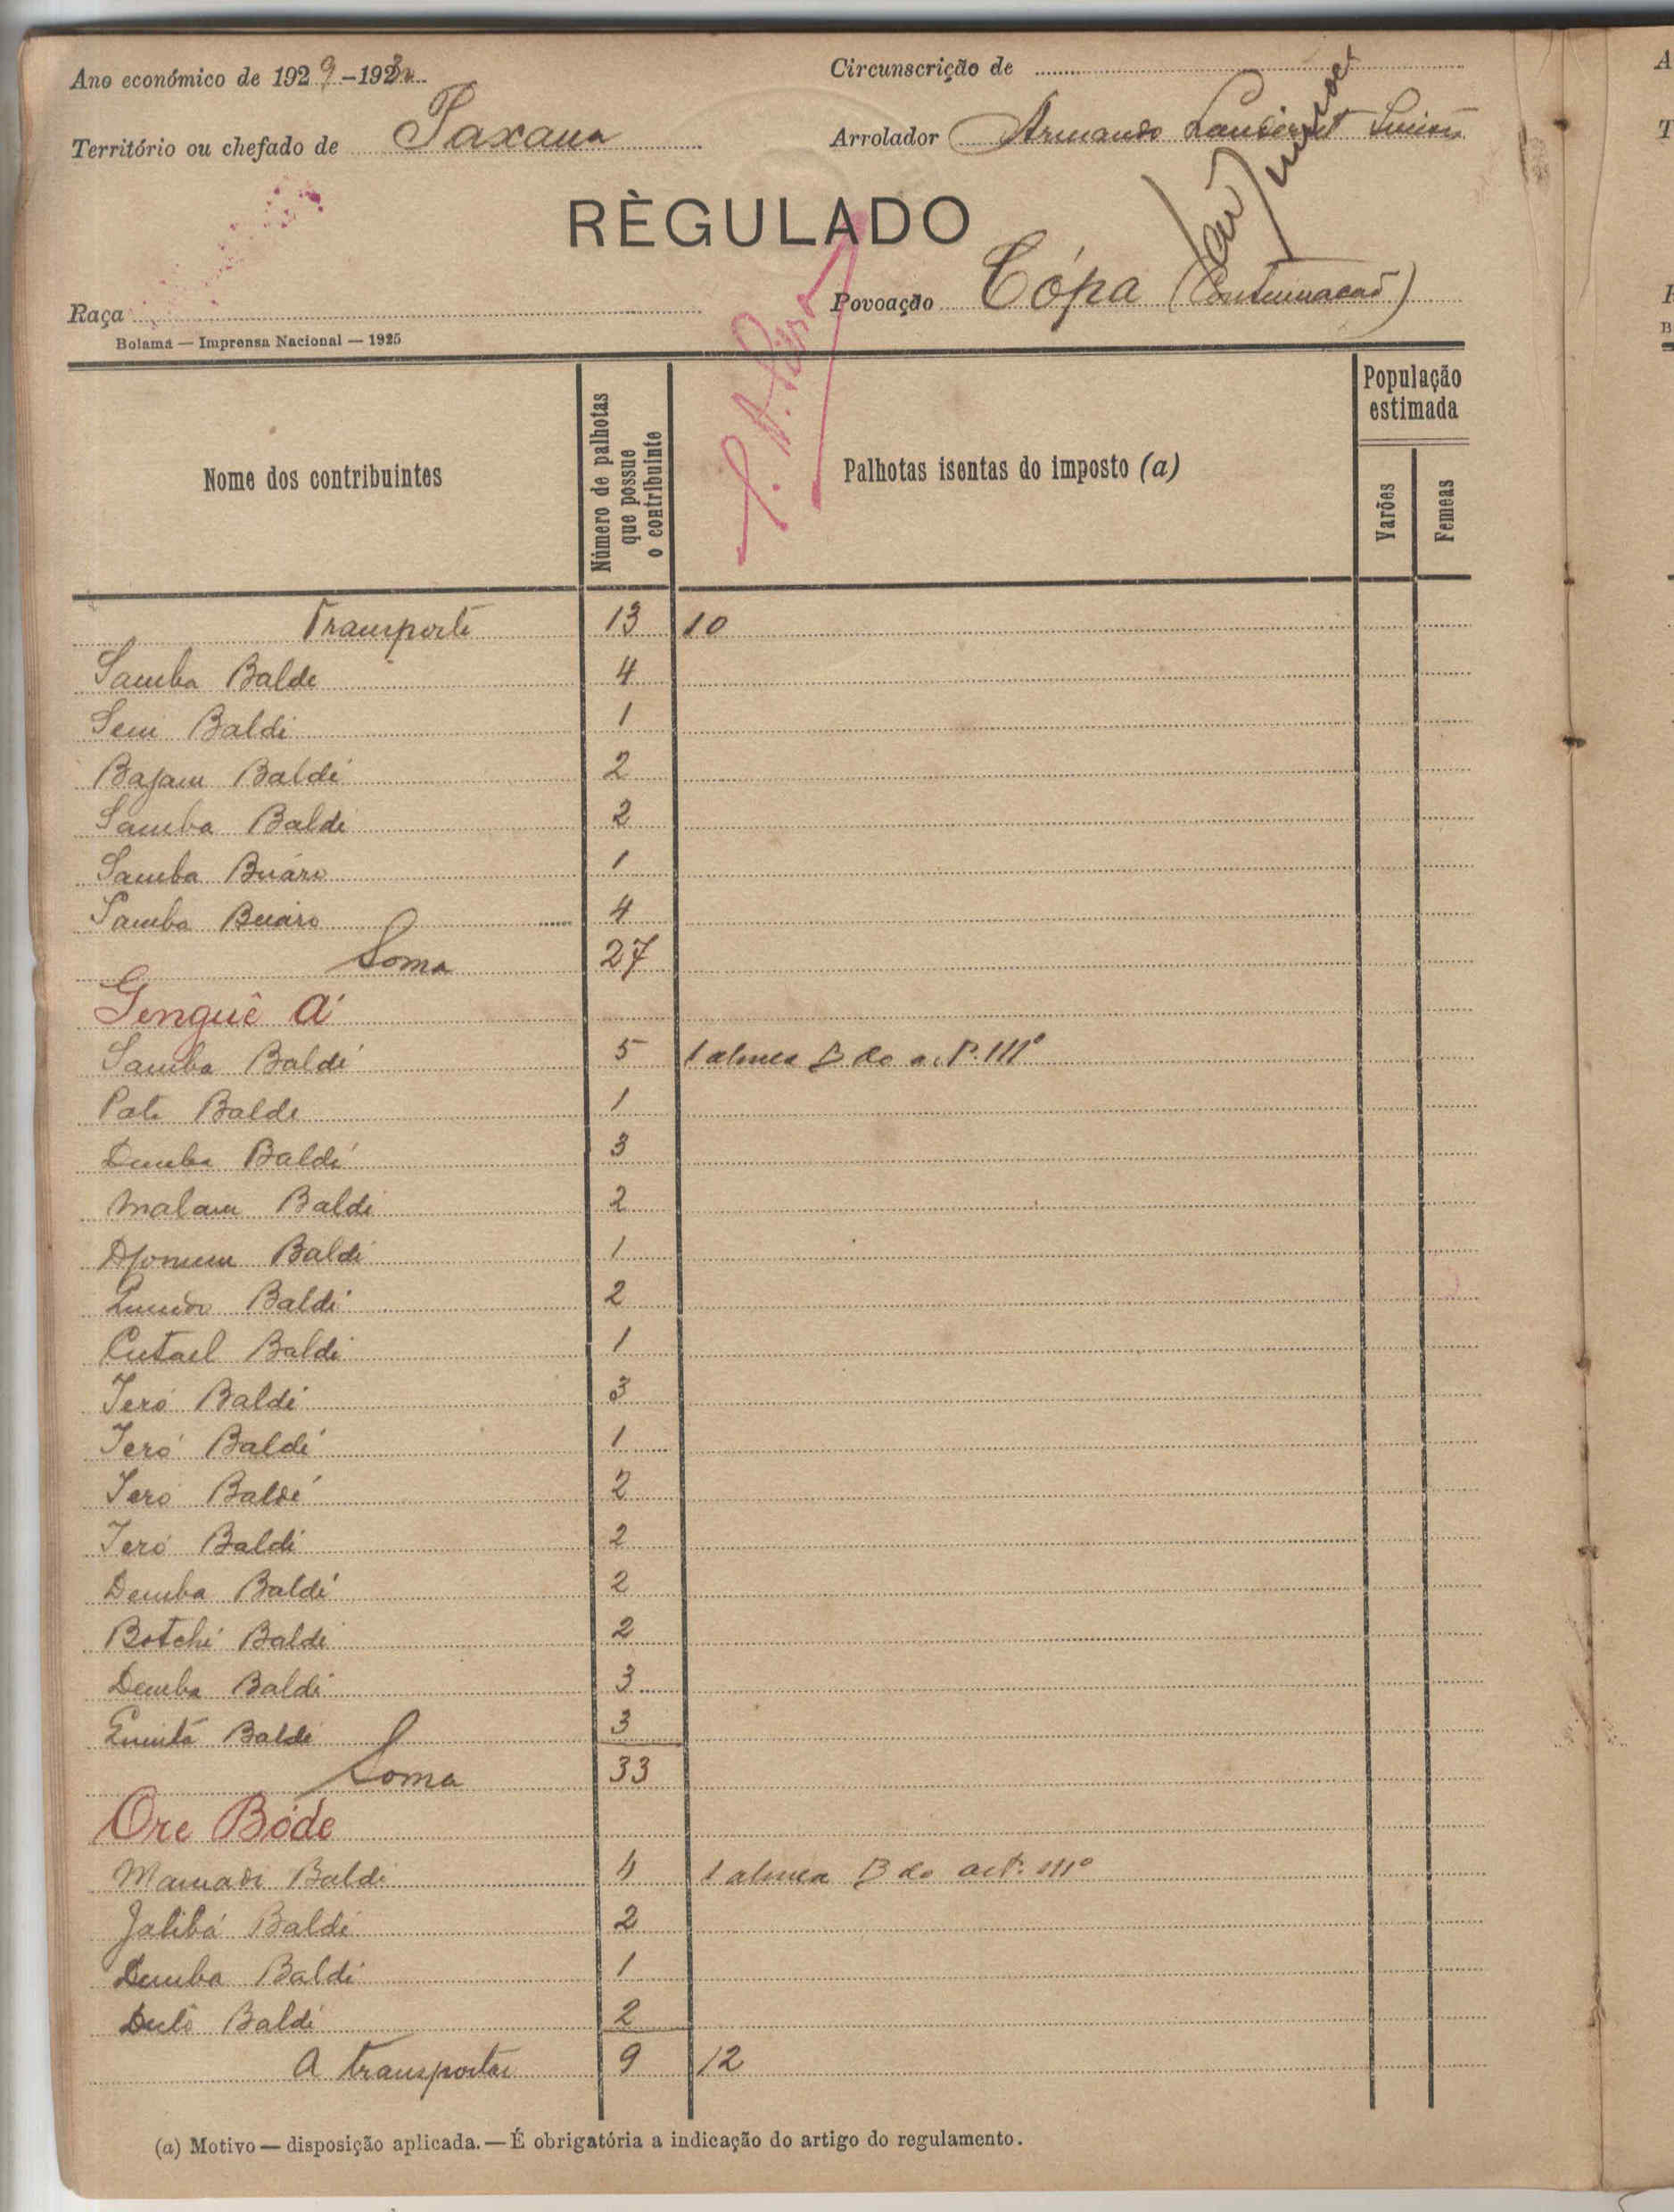 Ano económico de 1929-193
Circunscrição de
Território ou chefado de Paxana
Arrolador Armando
RÈGULADO
Raça
Povoação Cópa (Continuacao)
Bolama — Imprensa Nacional — 1925
Nome dos contribuintes
Número de palhotas que possue o contribuinte
Palhotas isentas do imposto (a)
População estimada
Varões
Femeas
Transporte 13 10
Samba Balde 4
Baldé 1
Bajam Baldé 2
Samba Baldé 2
Samba Buáro 1
Samba Buáro 4
Soma 27
Genguê Á
Samba Baldé 5 1 alinea B do art. 111º
Pate Balde 1
Demba Baldé 3
Malam Baldé 2
Baldé 1
Baldé 2
Cutael Baldé 1
Iero Baldé 3
Iero Baldé 1
Iero Baldé 2
Iero Baldé 2
Demba Baldé 2
Botche Baldé 2
Demba Baldé 3
Baldé 3
Soma 33
Ore Bóde
Mamadi Baldé 4 1 alinea B do art. 111º
Jalibá Baldé 2
Demba Baldé 1
Baldé 2
A transportar 9 12
(a) Motivo — disposição aplicada. — É obrigatória a indicação do artigo do regulamento.